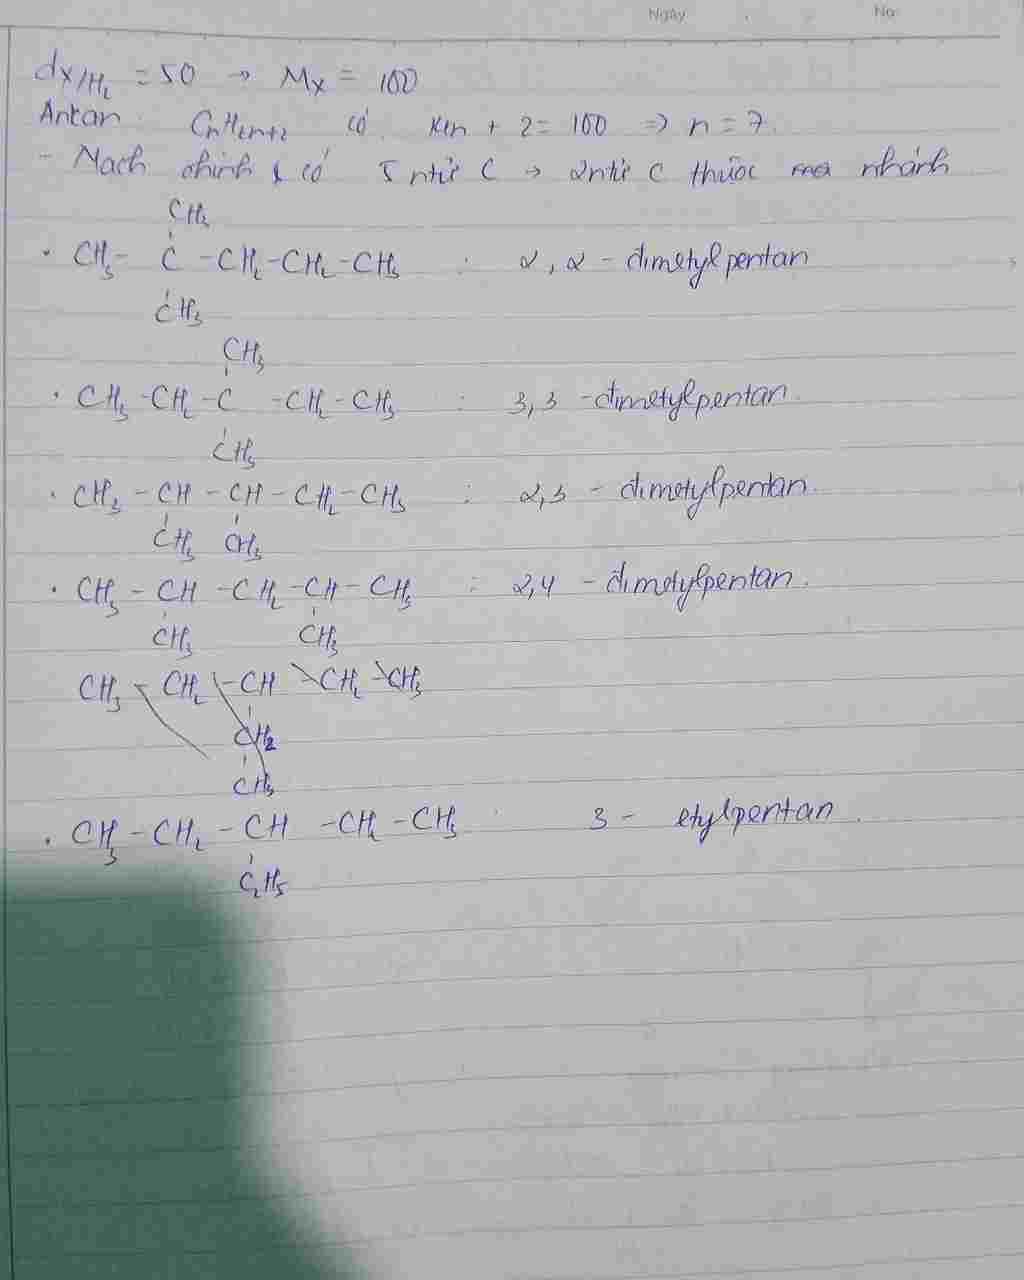 Ngày No.
dX/H₂ = 50 → Mx = 100
Ankan CnH2n+2 có 14n + 2 = 100 => n = 7.
- Mạch chính có 5 ntử C → 2 ntử C thuộc nhánh
CH₃
• CH₃ - C - CH₂ - CH₂ - CH₃ : 2,2 - dimetylpentan
CH₃
CH₃
• CH₃ - CH₂ - C - CH₂ - CH₃ : 3,3 - dimetylpentan.
CH₃
• CH₃ - CH - CH - CH₂ - CH₃ : 2,3 - dimetylpentan.
CH₃ CH₃
• CH₃ - CH - CH₂ - CH - CH₃ : 2,4 - dimetylpentan.
CH₃ CH₃
CH₃ - CH₂ - CH - CH₂ - CH₃
CH₂
CH₃
• CH₃ - CH₂ - CH - CH₂ - CH₃ : 3 - etylpentan.
C₂H₅